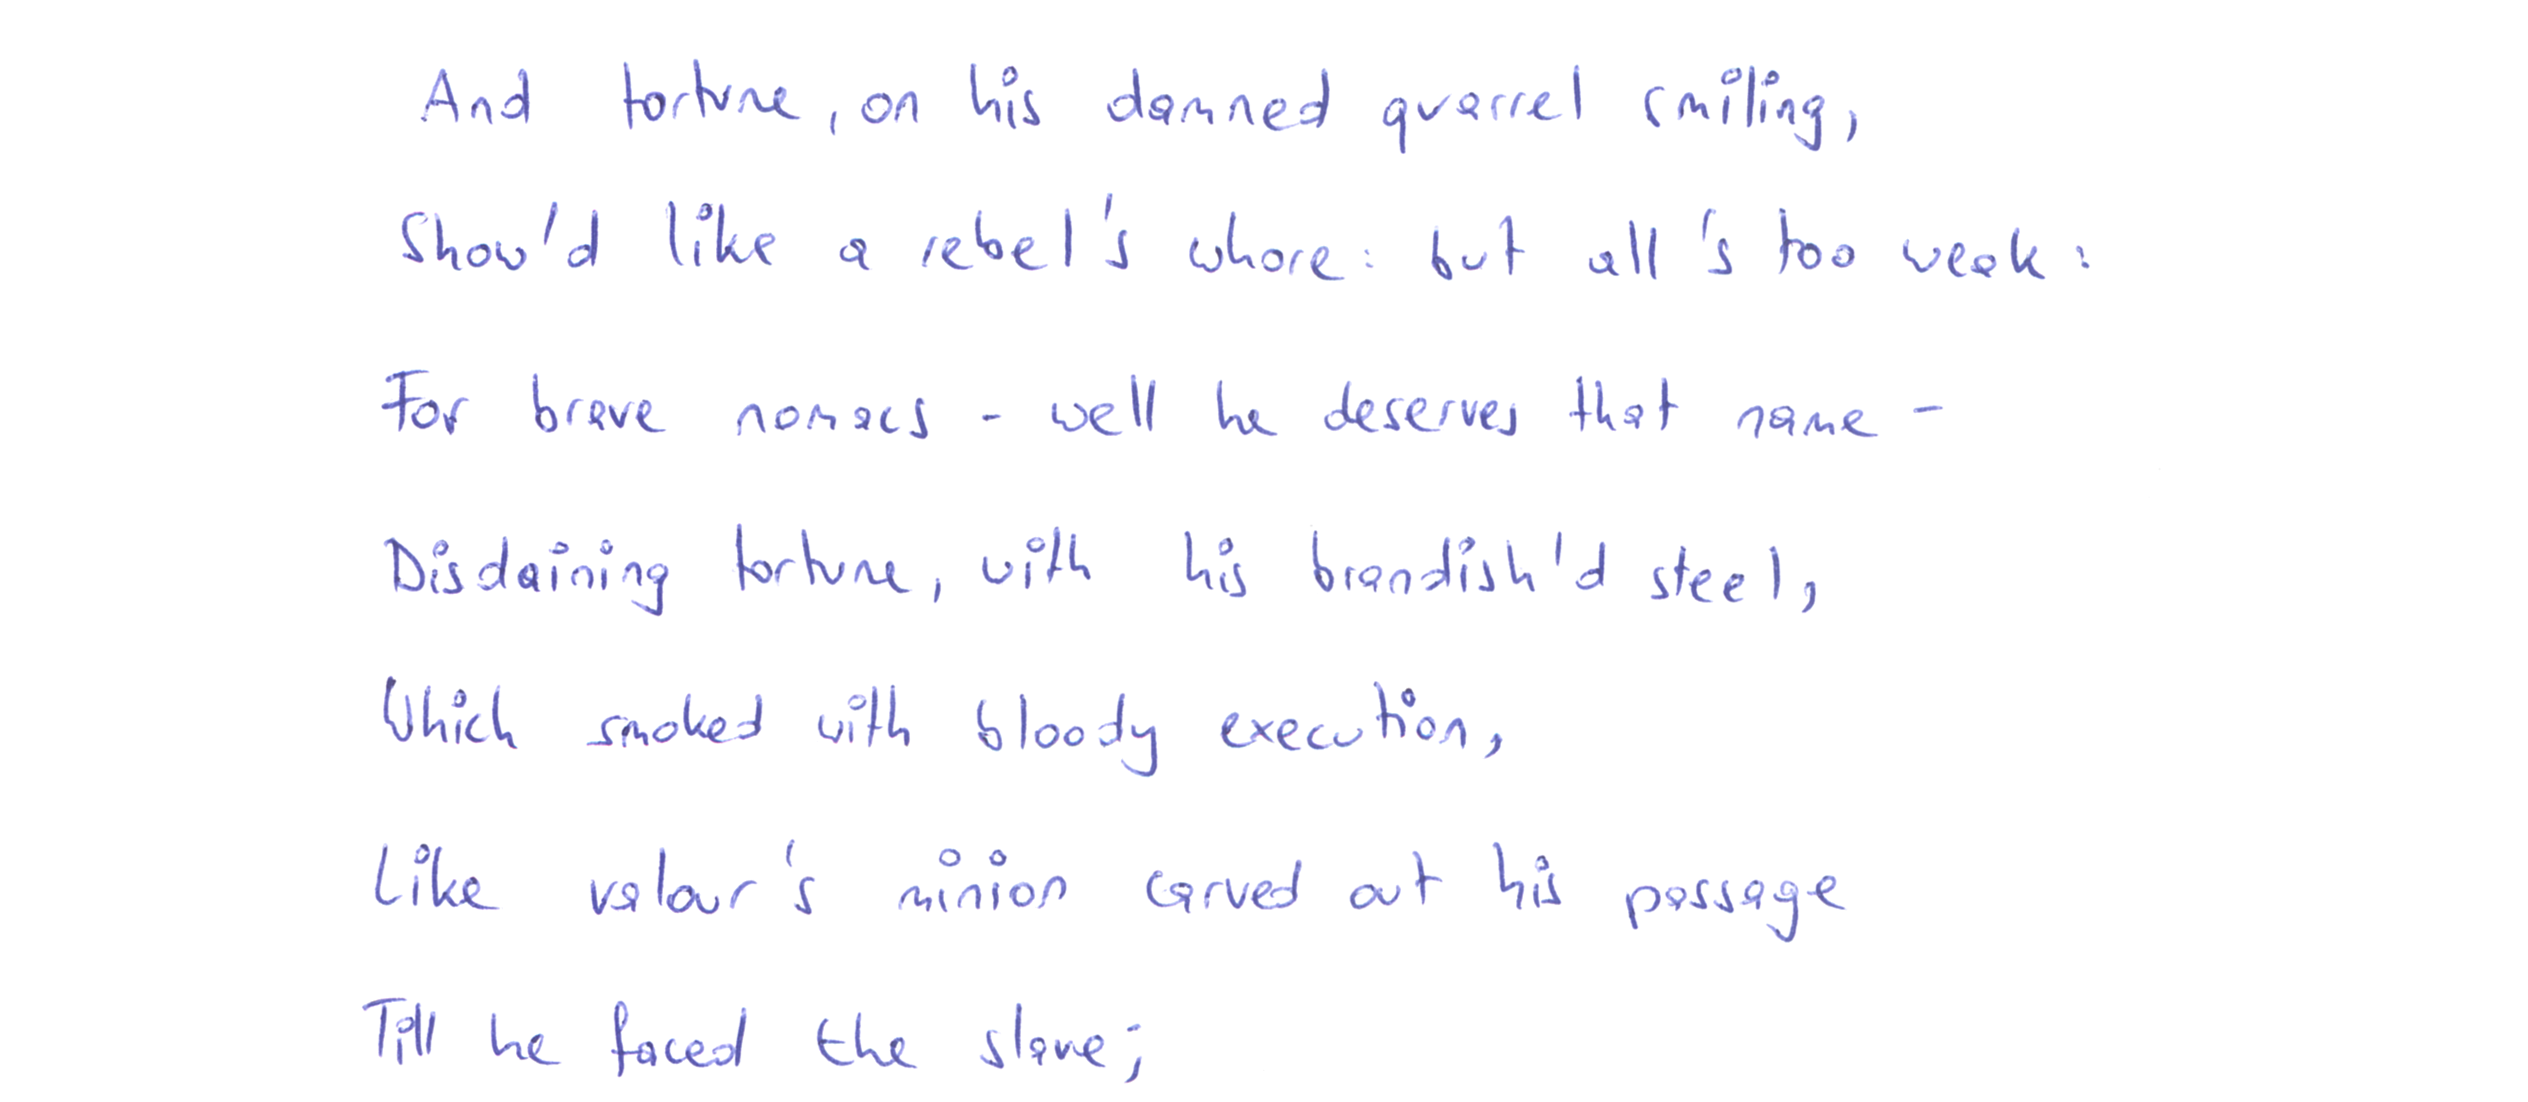 And fortune, on his damned quarrel smiling,
Show'd like a rebel's whore: but all's too weak:
For brave nomacs - well he deserves that name -
Disdaining fortune, with his brandish'd steel,
Which smoked with bloody execution,
Like valour's minion carved out his passage
Till he faced the slave;